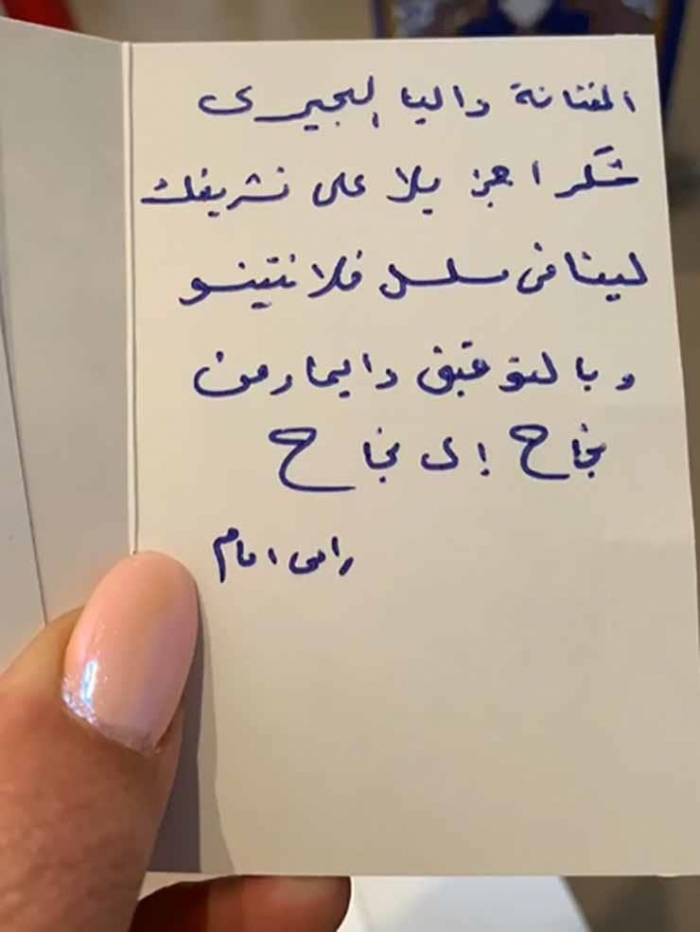 الفنانة داليا البحيرى
شكرا جزيلا على تشريفك
لينا فى مسلسل فلانتينو
وبالتوفيق دايما ومن
نجاح إلى نجاح
رامى امام